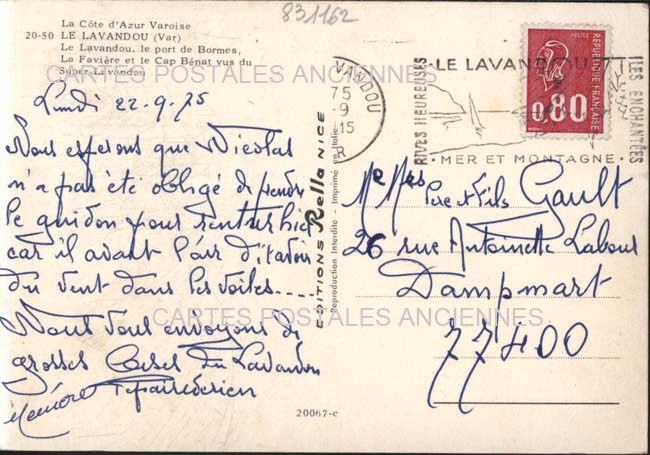 831162
La Côte d'Azur Varoise
20-50 LE LAVANDOU (Var)
Le Lavandou, le port de Bormes,
La Favière et le Cap Bénat vus du
Super-Lavandou
CARTES POSTALES ANCIENNES
Lundi 22-9-75
Nous esperons que Nicolas
n'a pas été obligé de prendre
le guidon pour rentrer hier
car il avait l'air d'avoir
du vent dans les voiles....
Nous vous envoyons de
grosses bises du Lavandou
EDITIONS Rella NICE
Reproduction Interdite - Imprimé en Italie
20067-c
VANDOU
75
-9
15
R
RIVES HEUREUSES
LE LAVANDOU
ILES ENCHANTÉES
MER ET MONTAGNE
POSTES
REPUBLIQUE FRANÇAISE
0,80
Pere et Fils Gault
26 rue Antoinette Labour
Dampmart
77400
CARTES POSTALES ANCIENNES